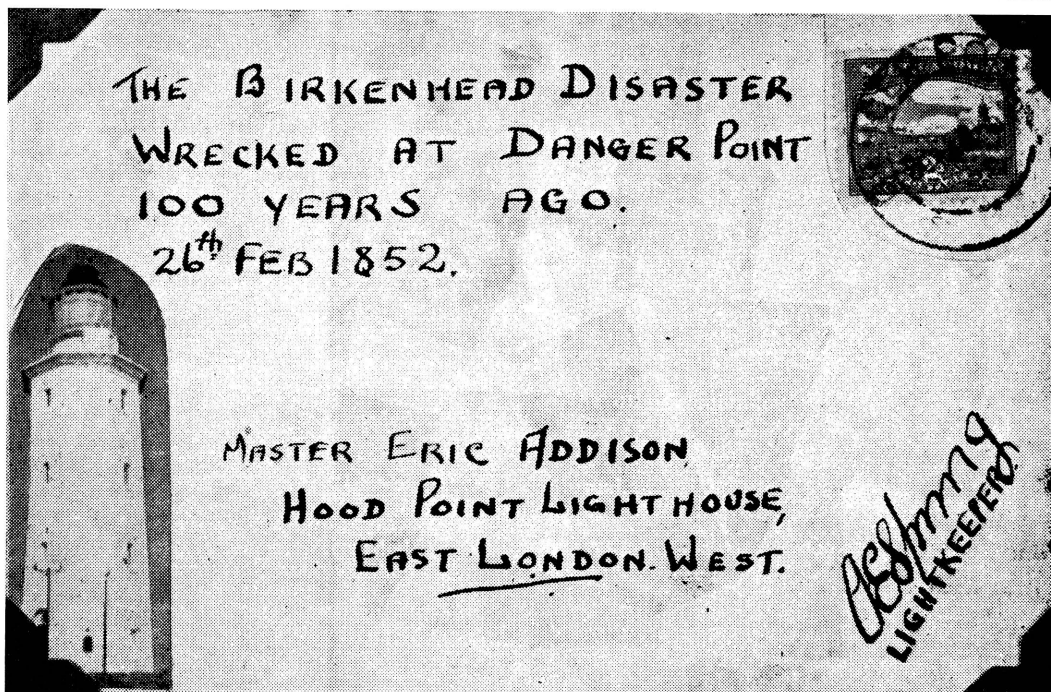 THE BIRKENHEAD DISASTER
WRECKED AT DANGER POINT
100 YEARS AGO.
26th FEB 1852.
MASTER ERIC ADDISON
HOOD POINT LIGHTHOUSE,
EAST LONDON. WEST.
LIGHTKEEPER.